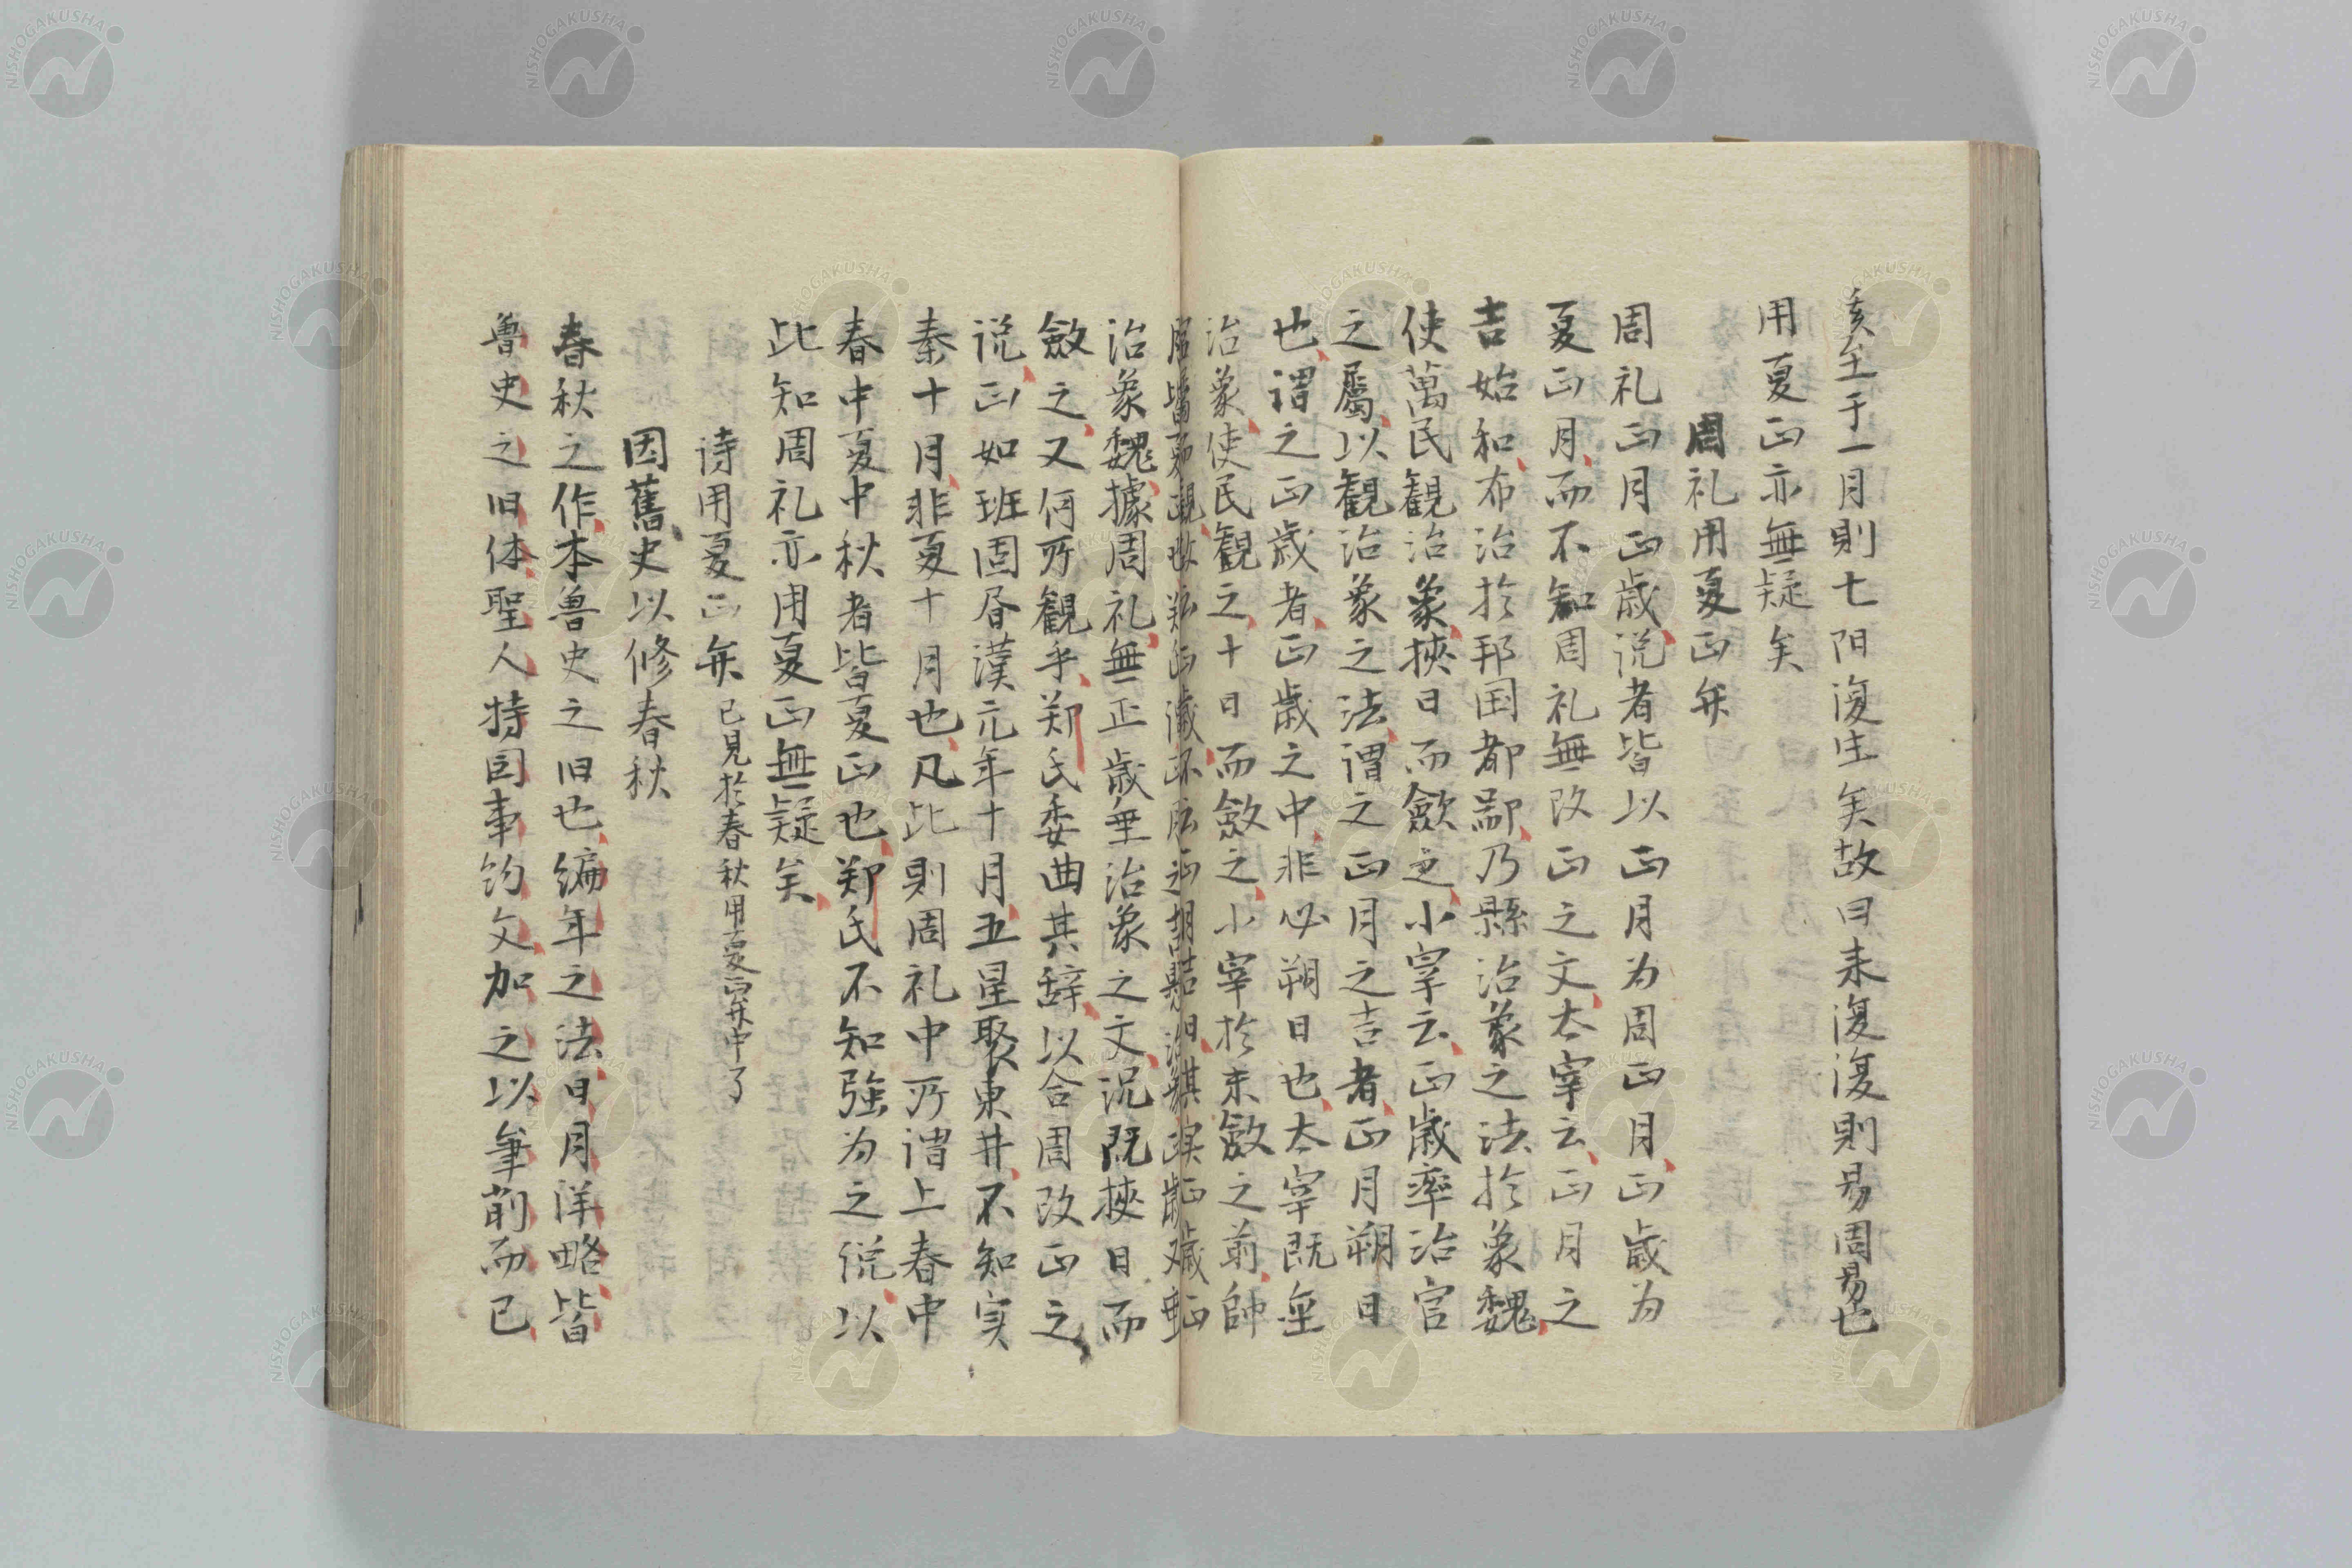 亥至于一月則七阳復生矣故曰来復復則易周易也
用夏正亦無疑矣
周礼用夏正弁
周礼正月正歳説者皆以正月为周正月正歳为
夏正月而不知周礼無改正之文太宰云正月之
吉始和布治於邦国都鄙乃縣治象之法於象魏
使萬民観治象挾日而斂之小宰云正歳率治官
之屬以観治象之法謂之正月之吉者正月朔日
也謂之正歳者正歳之中非必朔日也太宰既垂
治象使民観之十日而斂之小宰於未斂之前帥
治象魏據周礼無正歳垂治象之文況既挾日而
斂之又何所観乎郑氏委曲其辞以合周改正之
说正如班固㫺漢元年十月五星聚東井不知実
秦十月非夏十月也凡比則周礼中所谓上春中
春中夏中秋者皆夏正也郑氏不知強为之说以
比知周礼亦用夏正無疑矣
诗用夏正弁 已見於春秋用夏正弁中了
因舊史以修春秋
春秋之作本魯史之旧也編年之法日月洋略皆
魯史之旧体聖人特因事约文加之以筆削而已
NISHOGAKUSHA